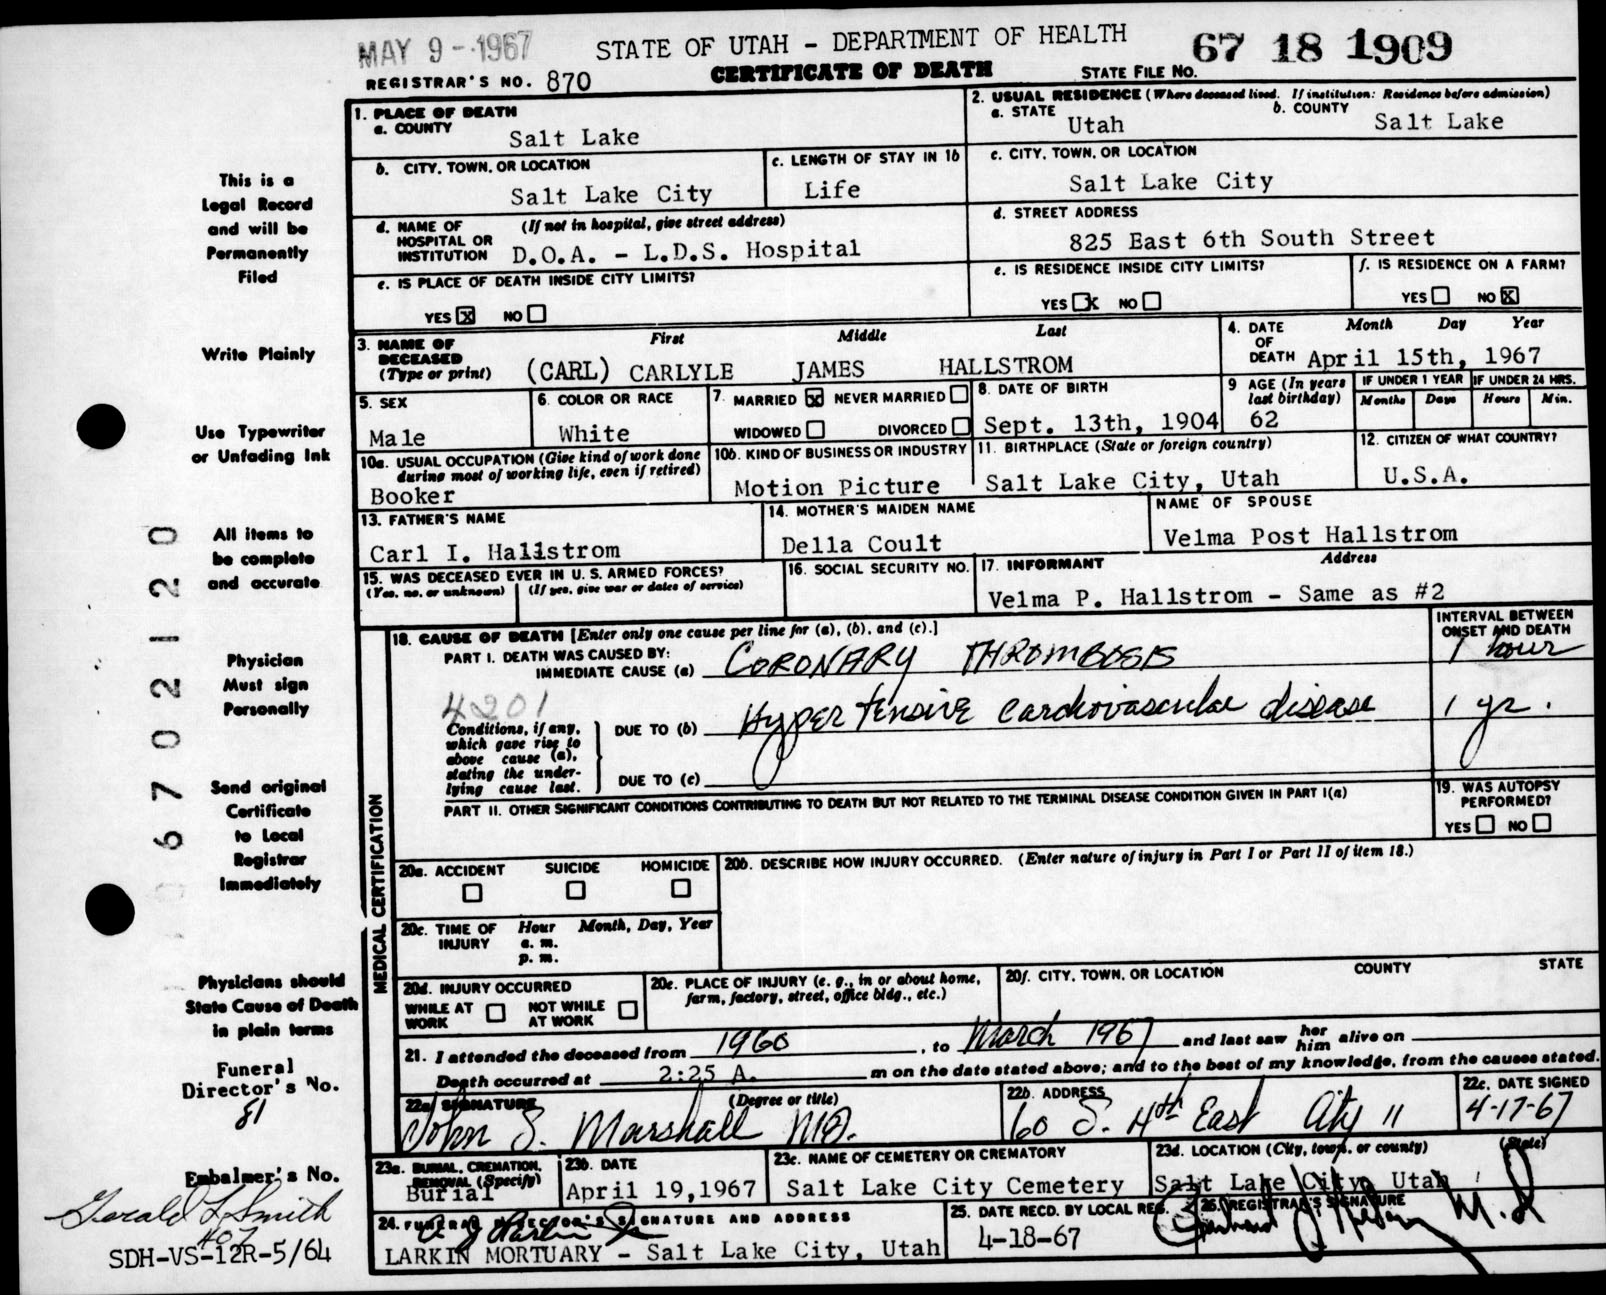 MAY 9 - 1967
STATE OF UTAH - DEPARTMENT OF HEALTH
67 18 1909
REGISTRAR'S NO. 870
CERTIFICATE OF DEATH
STATE FILE NO.
1. PLACE OF DEATH
a. COUNTY
Salt Lake
2. USUAL RESIDENCE (Where deceased lived. If institution: Residence before admission)
a. STATE
Utah
b. COUNTY
Salt Lake
b. CITY, TOWN, OR LOCATION
Salt Lake City
c. LENGTH OF STAY IN 1b
Life
c. CITY, TOWN, OR LOCATION
Salt Lake City
d. NAME OF HOSPITAL OR INSTITUTION
(If not in hospital, give street address)
D.O.A. - L.D.S. Hospital
d. STREET ADDRESS
825 East 6th South Street
e. IS PLACE OF DEATH INSIDE CITY LIMITS?
YES X NO
e. IS RESIDENCE INSIDE CITY LIMITS?
YES X NO
f. IS RESIDENCE ON A FARM?
YES NO X
3. NAME OF DECEASED
(Type or print)
First Middle Last
(CARL) CARLYLE JAMES HALLSTROM
4. DATE OF DEATH
Month Day Year
April 15th, 1967
5. SEX
Male
6. COLOR OR RACE
White
7. MARRIED X NEVER MARRIED
WIDOWED DIVORCED
8. DATE OF BIRTH
Sept. 13th, 1904
9 AGE (In years last birthday)
62
IF UNDER 1 YEAR
Months Days
IF UNDER 24 HRS.
Hours Min.
10a. USUAL OCCUPATION (Give kind of work done during most of working life, even if retired)
Booker
10b. KIND OF BUSINESS OR INDUSTRY
Motion Picture
11. BIRTHPLACE (State or foreign country)
Salt Lake City, Utah
12. CITIZEN OF WHAT COUNTRY?
U.S.A.
13. FATHER'S NAME
Carl I. Hallstrom
14. MOTHER'S MAIDEN NAME
Della Coult
NAME OF SPOUSE
Velma Post Hallstrom
15. WAS DECEASED EVER IN U. S. ARMED FORCES?
(Yes, no, or unknown) (If yes, give war or dates of service)
16. SOCIAL SECURITY NO.
17. INFORMANT Address
Velma P. Hallstrom - Same as #2
MEDICAL CERTIFICATION
18. CAUSE OF DEATH [Enter only one cause per line for (a), (b), and (c).]
INTERVAL BETWEEN ONSET AND DEATH
PART I. DEATH WAS CAUSED BY:
IMMEDIATE CAUSE (a) CORONARY THROMBOSIS 1 hour
4201
Conditions, if any, which gave rise to above cause (a), stating the underlying cause last.
DUE TO (b) Hypertensive cardiovascular disease 1 yr.
DUE TO (c)
PART II. OTHER SIGNIFICANT CONDITIONS CONTRIBUTING TO DEATH BUT NOT RELATED TO THE TERMINAL DISEASE CONDITION GIVEN IN PART I(a)
19. WAS AUTOPSY PERFORMED?
YES NO
20a. ACCIDENT SUICIDE HOMICIDE
20b. DESCRIBE HOW INJURY OCCURRED. (Enter nature of injury in Part I or Part II of item 18.)
20c. TIME OF INJURY
Hour Month, Day, Year
a. m.
p. m.
20d. INJURY OCCURRED
WHILE AT WORK
NOT WHILE AT WORK
20e. PLACE OF INJURY (e. g., in or about home, farm, factory, street, office bldg., etc.)
20f. CITY, TOWN, OR LOCATION COUNTY STATE
21. I attended the deceased from 1960, to March 1967 and last saw her him alive on
Death occurred at 2:25 A. m on the date stated above; and to the best of my knowledge, from the causes stated.
22a SIGNATURE (Degree or title)
John S. Marshall MD.
22b. ADDRESS
60 S. 4th East City 11
22c. DATE SIGNED
4-17-67
23a. BURIAL, CREMATION, REMOVAL (Specify)
Burial
23b. DATE
April 19, 1967
23c. NAME OF CEMETERY OR CREMATORY
Salt Lake City Cemetery
23d. LOCATION (City, town, or county) (State)
Salt Lake City, Utah
24. FUNERAL DIRECTOR'S SIGNATURE AND ADDRESS
LARKIN MORTUARY - Salt Lake City, Utah
25. DATE RECD. BY LOCAL REG.
4-18-67
26. REGISTRAR'S SIGNATURE
M.D
This is a
Legal Record
and will be
Permanently
Filed
Write Plainly
Use Typewriter
or Unfading Ink
All items to
be complete
and accurate
Physician
Must sign
Personally
Send original
Certificate
to Local
Registrar
Immediately
Physicians should
State Cause of Death
in plain terms
Funeral
Director's No.
81
Embalmer's No.
Gerald L Smith
407
SDH-VS-12R-5/64
0 6 7 0 2 1 2 0